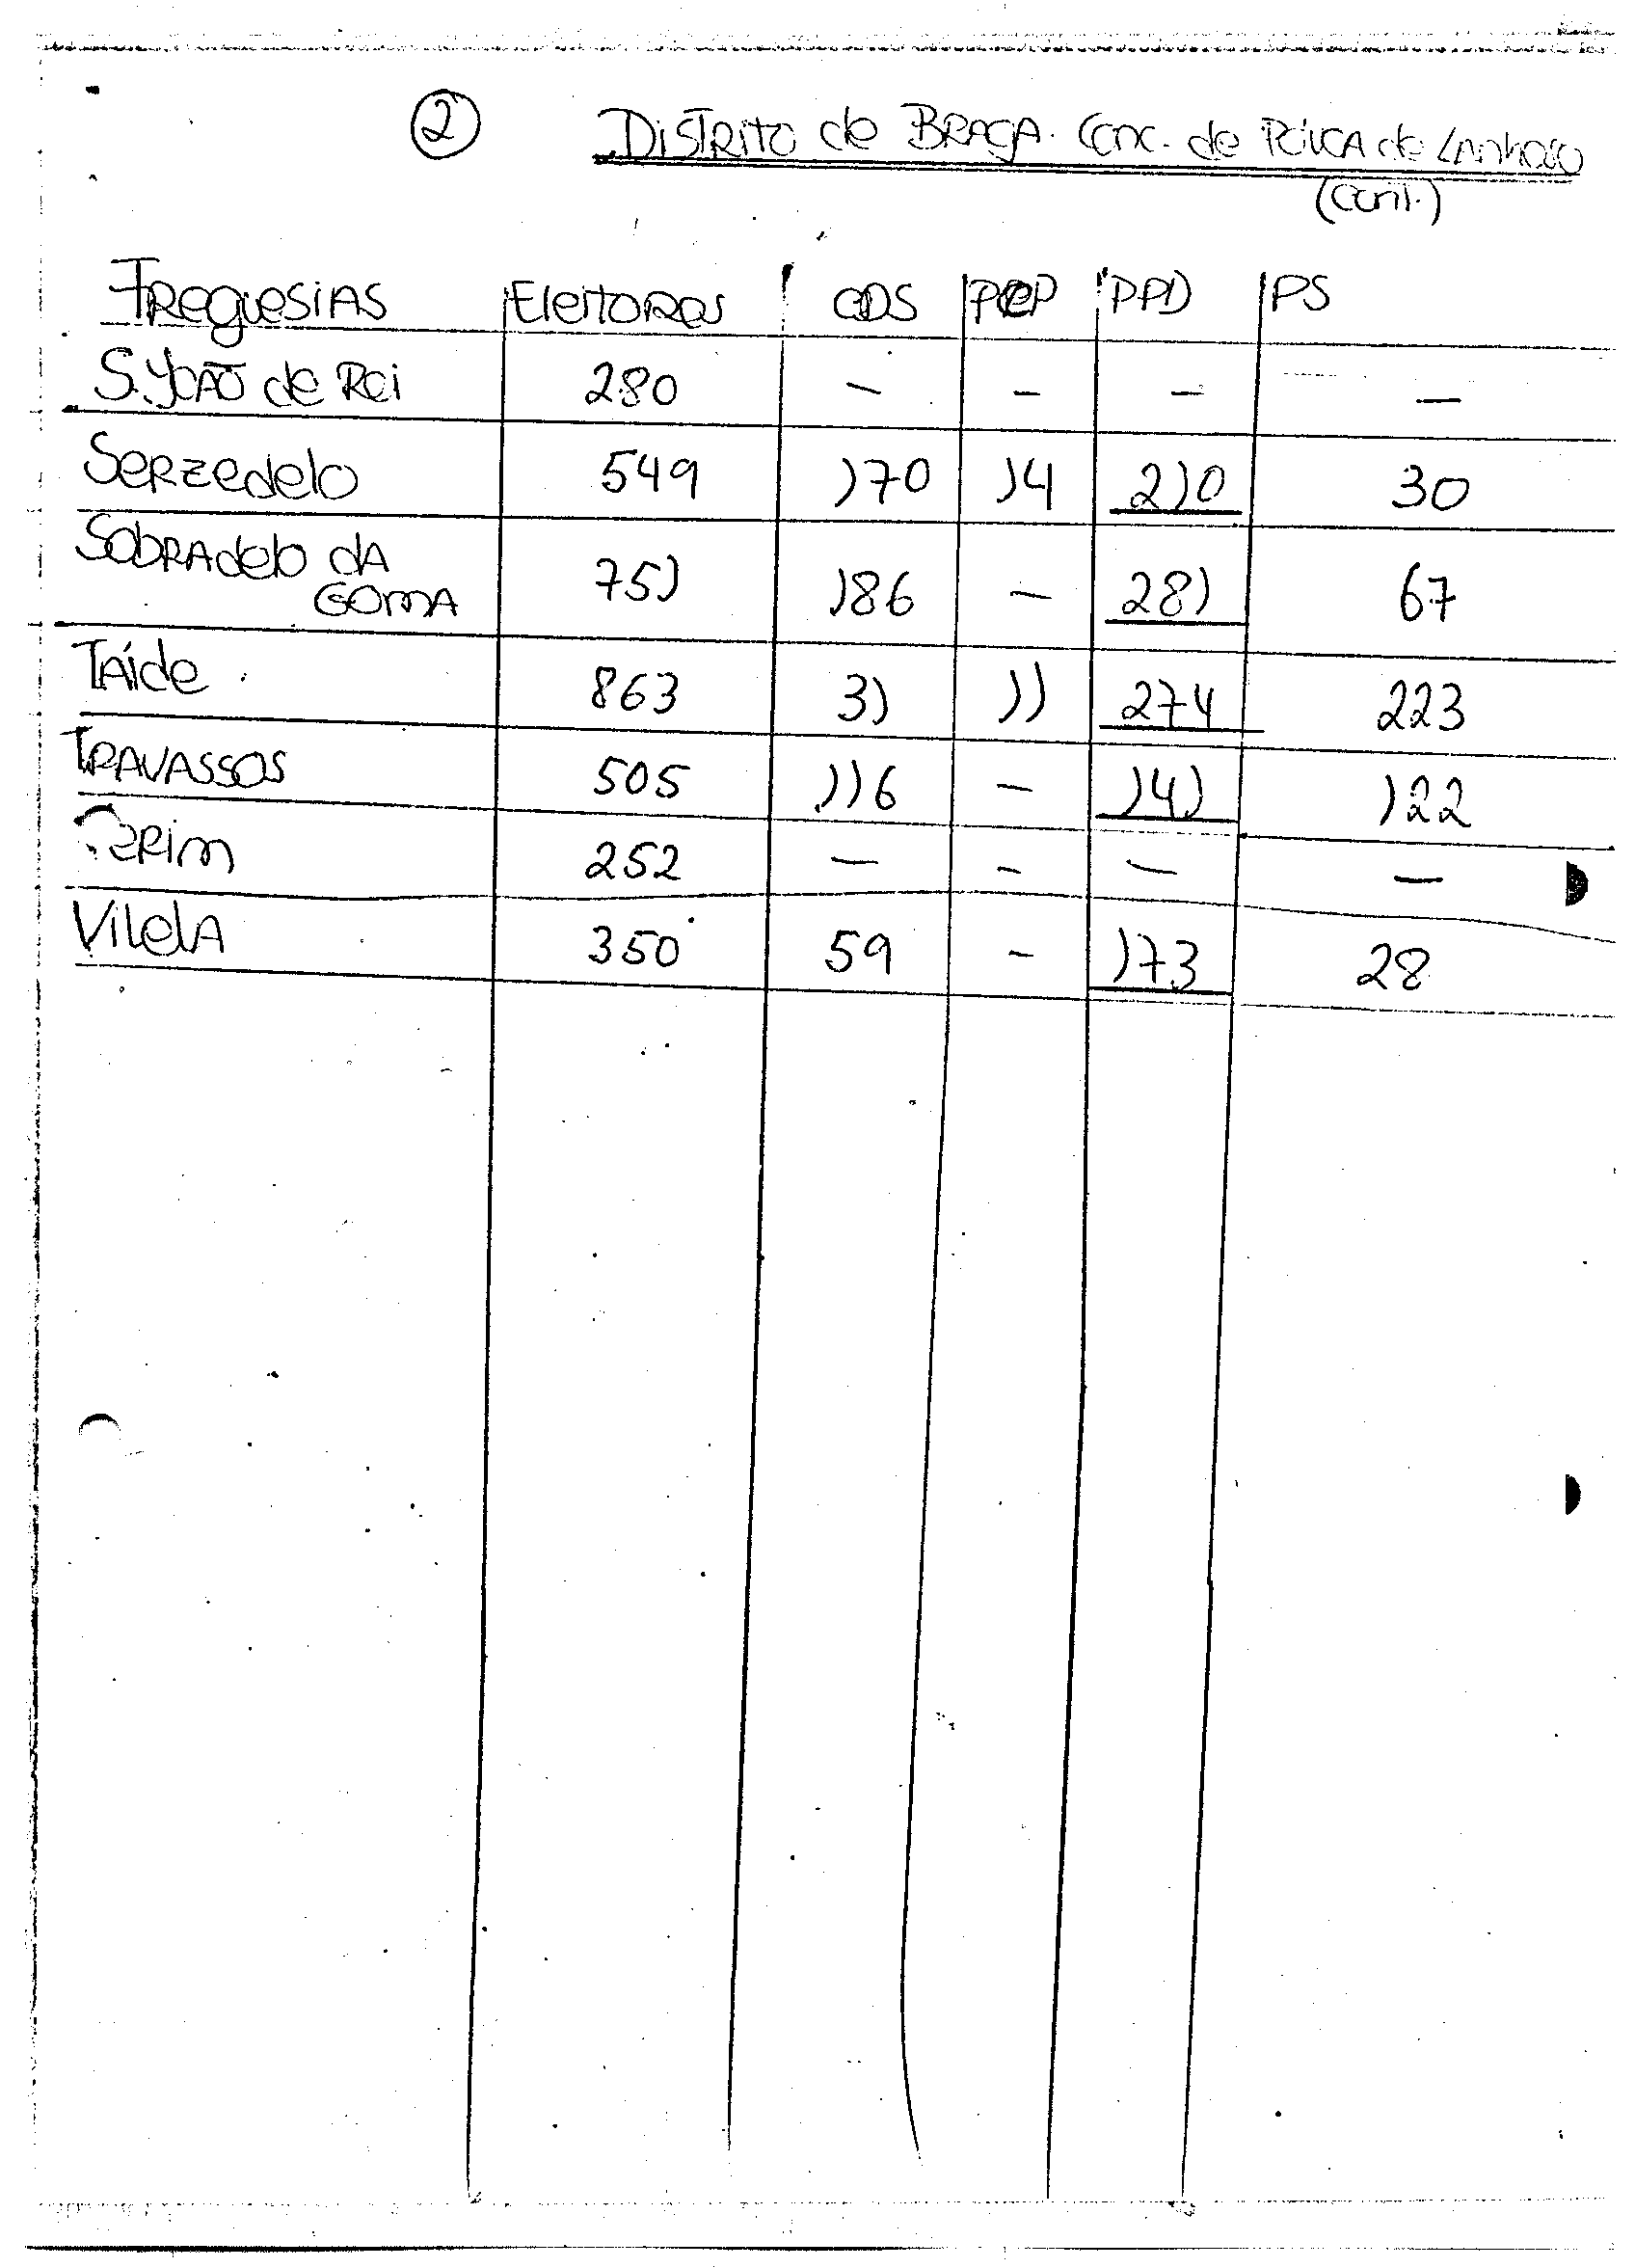 2 Distrito de Braga. Conc. de Póvoa de Lanhoso
(cont.)
Freguesias Eleitores CDS PCP PPD PS
S. João de Rei 280 — — — —
Serzedelo 549 170 14 210 30
Sobradelo da
Goma 751 186 — 281 67
Taíde 863 31 11 274 223
Travassos 505 116 — 141 122
252 — — — —
Vilela 350 59 — 173 28